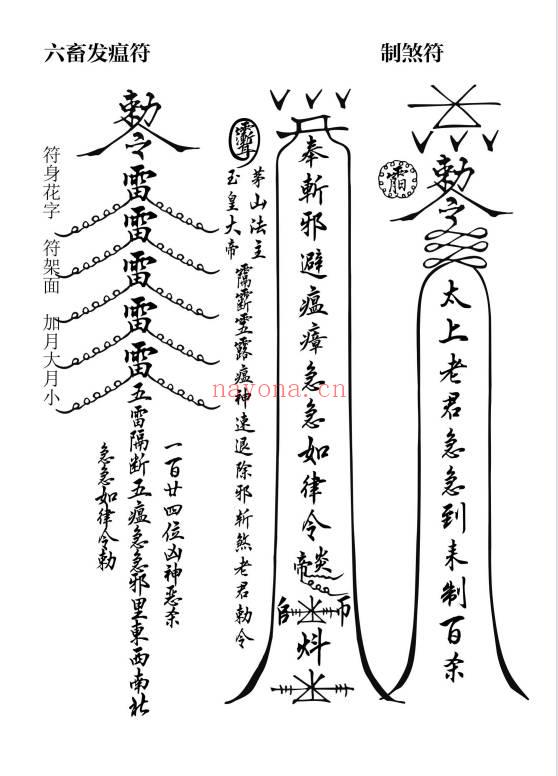 六畜发瘟符
制煞符
敕令
雷
雷
雷
雷
雷
五雷隔断五瘟急急邪里東西南北
一百廿四位凶神恶杀
急急如律令勅
符身花字 符架面 加月大月小
茅山法主
玉皇大帝
瘟神速退除邪斩煞老君勅令
奉斬邪避瘟瘴急急如律令
炎帝
敕令
太上老君急急到来制百杀
nayona.cn